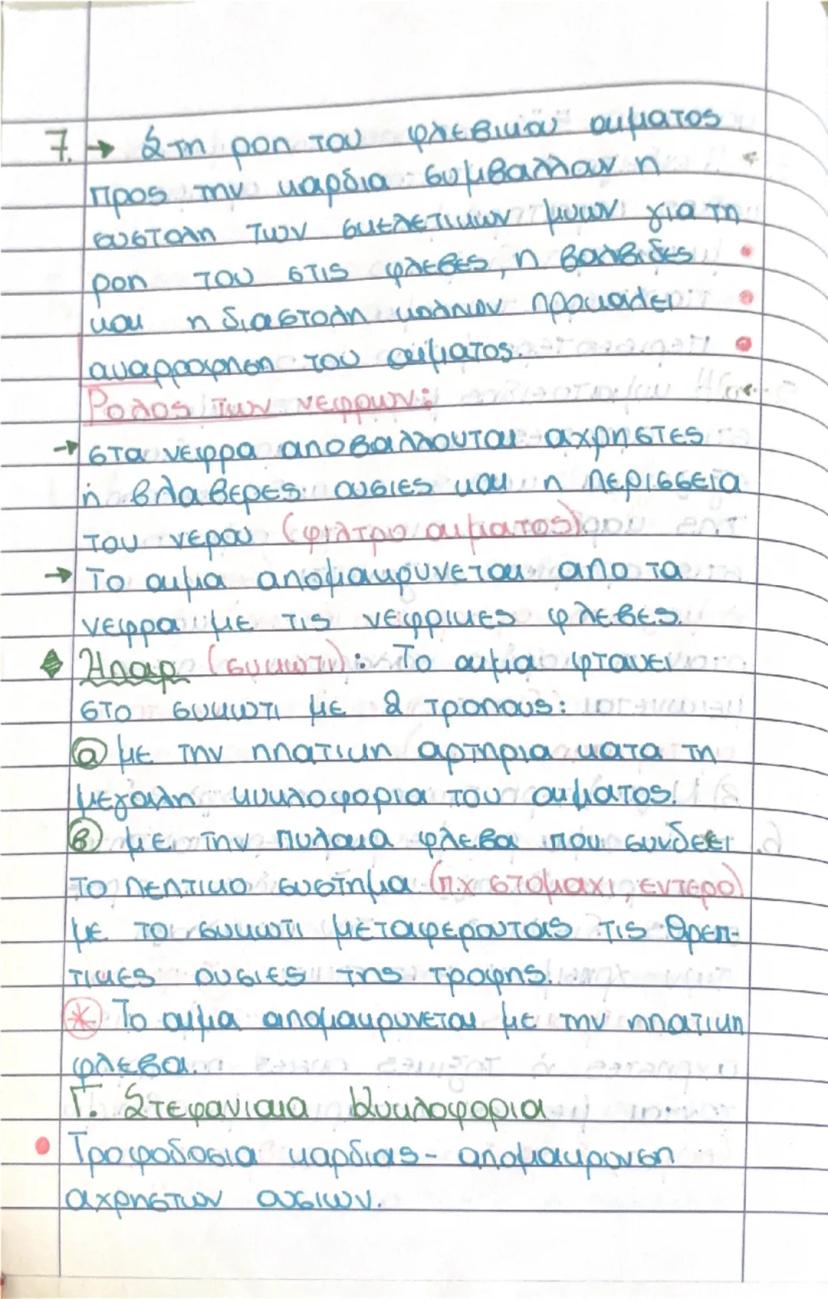 7. → Στη ροη του φλεβικου αιματος
προς την καρδια συμβαλλουν η
συστολη των σκελετικων μυων για τη
ροη του στις φλεβες, η βαλβιδες
και η διαστολη κολπων προκαλει
αναρροφηση του αιματος.
Ρολος των νεφρων:
→ στα νεφρα αποβαλλονται αχρηστες
ή βλαβερες ουσιες και η περισσεια
του νερου (φιλτρο αιματος)
→ Το αιμα απομακρυνεται απο τα
νεφρα με τις νεφρικες φλεβες.
◆ Ηπαρ (συκωτι): Το αιμα φτανει
στο συκωτι με 2 τροπους:
α με την ηπατικη αρτηρια κατα τη
μεγαλη κυκλοφορια του αιματος.
β με την πυλαια φλεβα που συνδεει
το πεπτικο συστημα (π.χ στομαχι, εντερο)
με το συκωτι μεταφεροντας τις θρεπ-
τικες ουσιες της τροφης.
* Το αιμα απομακρυνεται με την ηπατικη
φλεβα.
Γ. Στεφανιαια Κυκλοφορια
• Τροφοδοσια καρδιας - απομακρυνση
αχρηστων ουσιων.